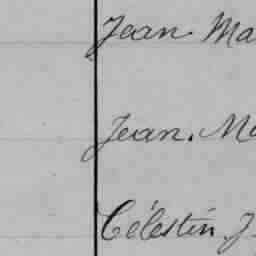 Jean Ma
Jean. Ma
Célestin J